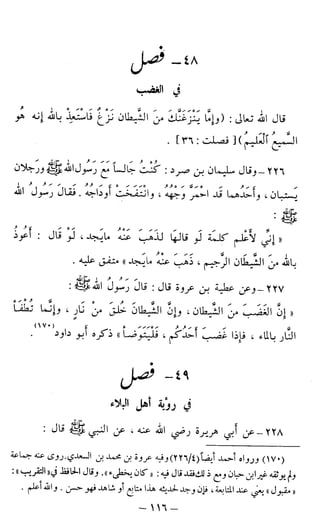 ٤٨- فصل
في الغضب
قال الله تعالى : ( وإمَّا يَنْزَغَنَّكَ مِنَ الشَّيطان نَزْغٌ فَاسْتَعِذْ بالله إنه هُو
السميع العَليم ) [ فصلت : ٣٦ ] .
٢٢٦- وقال سليمان بن صرد : كُنْتُ جَالساً مَع رَسول الله ﷺ وَرَجلان
يَستبان ، وأحَدهما قد احْمَرَّ وَجْهُه ، وانْتفَخَتْ أوداجُه . فقالَ رَسولُ الله
ﷺ :
« إنِّي لأعْلم كلمة لو قالها لذهَبَ عنْهُ مايجد ، لوْ قال : أعوذُ
بالله منَ الشيطان الرَّجيم ، ذَهبَ عنْهُ مايجد » متفق عليه .
٢٢٧- وعن عطية بن عروة قال : قالَ رَسولُ الله ﷺ :
« إنَّ الغَضَبَ مِنَ الشيطان ، وإنَّ الشيطان خُلقَ منْ نَار ، وإنَّما تُطفَأ
النار بالماء ، فإذا غضب أحدُكم ، فليَتوضأ » ذكره أبو داود (١٧٠) .
٤٩- فصل
في رؤية أهل البلاء
٢٢٨- عن أبي هريرة رضي الله عنه ، عن النبي ﷺ قال :
(١٧٠) ورواه أحمد أيضاً (٢٢٦/٤) وفيه عروة بن محمد بن السعدي . روى عنه جماعة
ولم يوثقه غير ابن حبان ومع ذلك فقد قال فيه : « كان يخطىء » . وقال الحافظ في « التقريب » :
« مقبول » يعني عند المتابعة ، فإن وجد لحديثه هذا متابع أو شاهد فهو حسن . والله أعلم .
- ١١٦ -